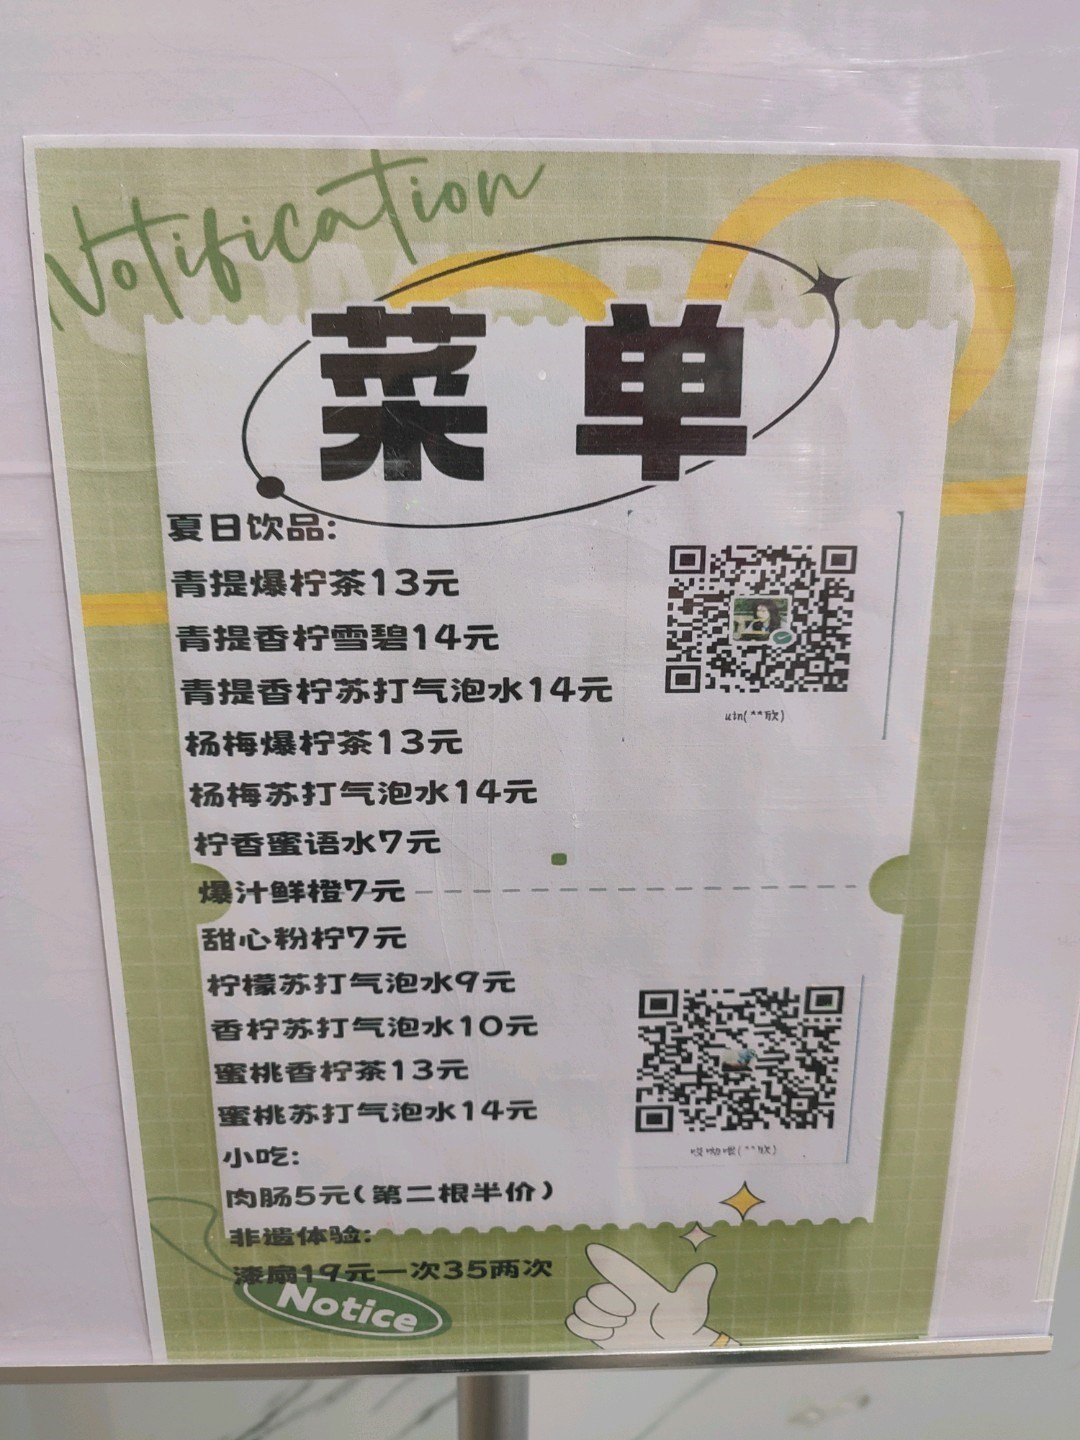 Notification
COME BACK
菜单
夏日饮品:
青提爆柠茶13元
青提香柠雪碧14元
青提香柠苏打气泡水14元
uin(**欣)
杨梅爆柠茶13元
杨梅苏打气泡水14元
柠香蜜语水7元
爆汁鲜橙7元
甜心粉柠7元
柠檬苏打气泡水9元
香柠苏打气泡水10元
蜜桃香柠茶13元
蜜桃苏打气泡水14元
(**欣)
小吃:
肉肠5元(第二根半价)
非遗体验:
漆扇19元一次35两次
Notice